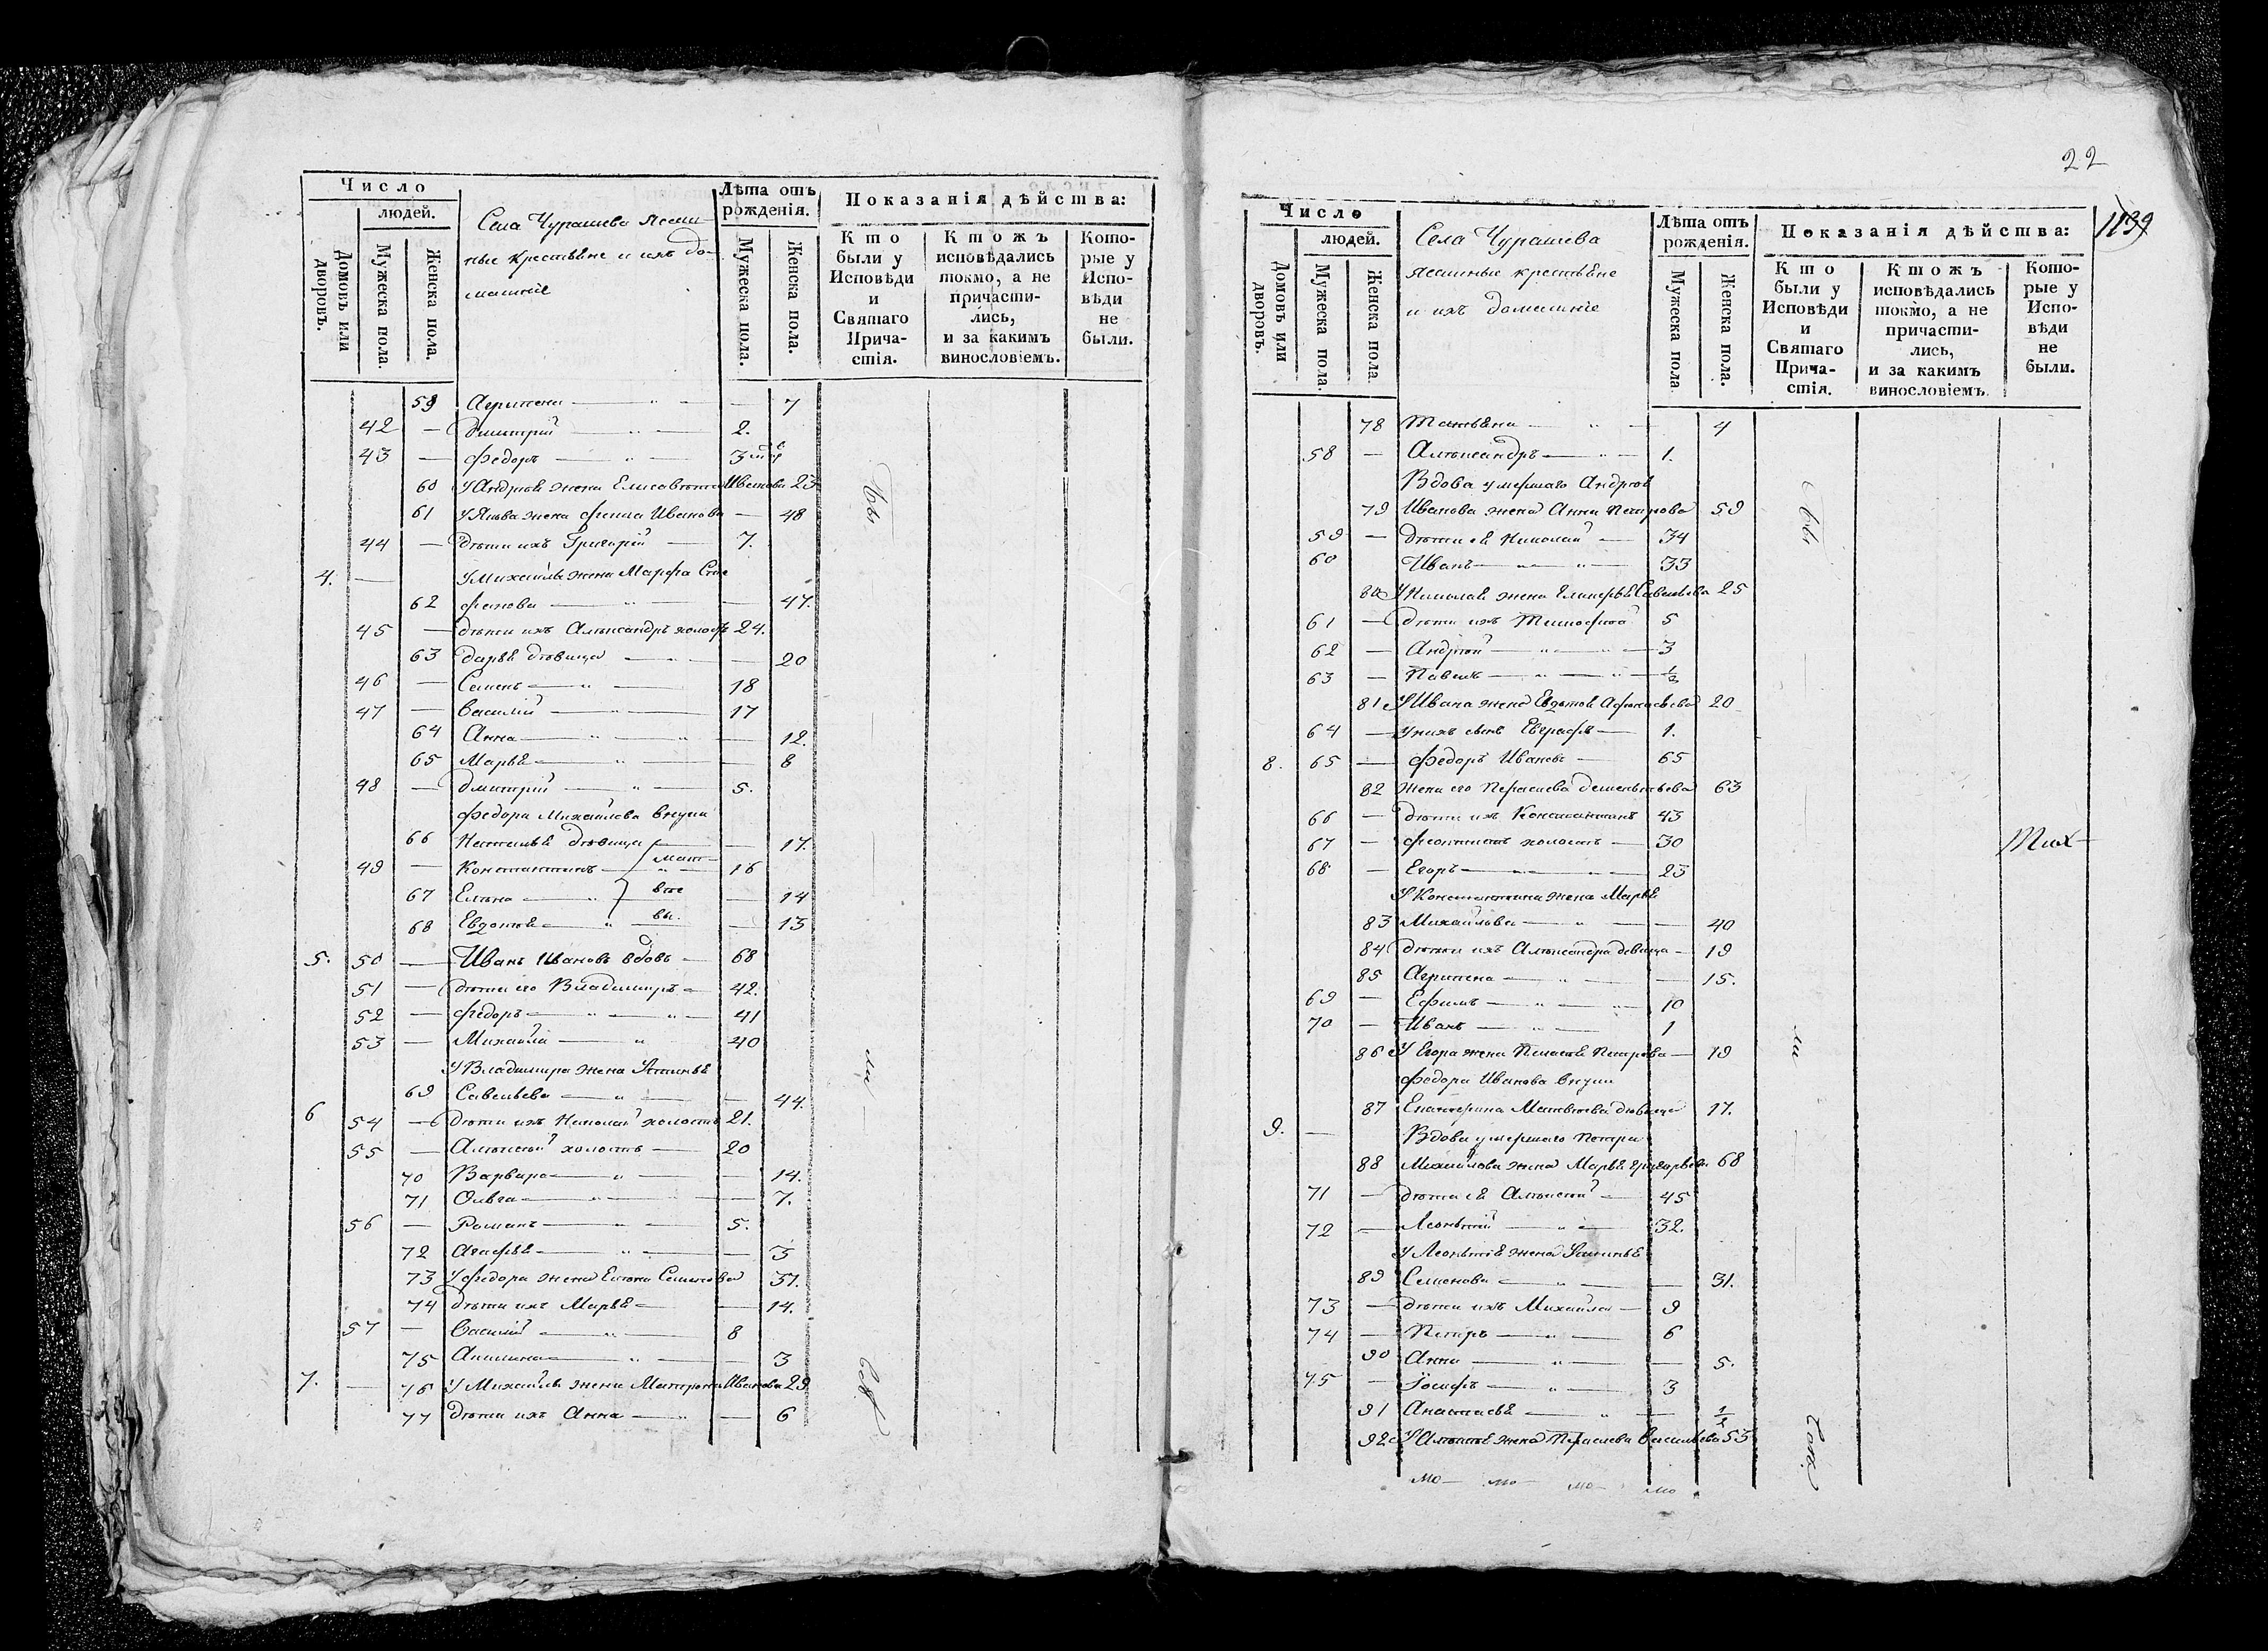 Число
людей.
Домовъ или дворовъ.
Мужеска пола.
Женска пола.
Села Чурашева Ясаш-
ные крестьяне и ихъ до-
машніе
Лѣта отъ рожденія.
Мужеска пола.
Женска пола.
Показанія дѣйства:
Кто были у Исповѣди и Святаго Причастія.
Ктожъ исповѣдались токмо, а не причастились, и за какимъ винословіемъ.
Которые у Исповѣди не были.
59 Агрипена — 7
42 — Дмитрій — 2.
43 — Федоръ — 3
60 У Андрея жена Елисавета Иванова 23
61 У Якова жена Фекла Иванова — 48
44 — Дѣти ихъ Григорій — 7.
4. — У Михаила жена Марфа Сте
62 фанова — 47.
45 — Дѣти ихъ Александръ холостъ 24.
63 Дарья дѣвица — 20
46 — Семенъ — 18
47 — Василій — 17
64 Анна — 12.
65 Марья — 8
48 — Дмитрій — 5.
Федора Михайлова внуки
66 Наталья дѣвица — 17.
49 — Константинъ — 16
67 Елена — 14
68 Евдотья — 13
Мат
вѣе
вы.
5. 50 — Иванъ Ивановъ вдовъ — 68
51 — Дѣти его Владимиръ — 42.
52 — Федоръ — 41
53 — Михаила — 40
У Владимира жена Устинья
69 Савельева — 44.
6 54 — Дѣти ихъ Николай холостъ 21.
55 — Алексѣй холостъ — 20
70 Варвара — 14.
71 Ольга — 7.
56 — Романъ — 5.
72 Агафья — 3
73 У Федора жена Елена Семенова 37.
74 Дѣти ихъ Марья — 14.
57 — Василій — 8
75 Акилина — 3
7. — 76 У Михаила жена Матрена Иванова 29
77 Дѣти ихъ Анна — 6
22
1139
Число
людей.
Домовъ или дворовъ.
Мужеска пола.
Женска пола.
Села Чурашева
Ясашные крестьяне
и ихъ домашніе
Лѣта отъ рожденія.
Мужеска пола.
Женска пола.
Показанія дѣйства:
Кто были у Исповѣди и Святаго Причастія.
Ктожъ исповѣдались токмо, а не причастились, и за какимъ винословіемъ.
Которые у Исповѣди не были.
78 Татьяна — 4
58 — Александръ — 1.
Вдова умершаго Андрея
79 Иванова жена Анна Петрова 59
59 — Дѣти ея Николай — 34
60 Иванъ — 33
80 У Николая жена Гликерья Савельева 25
61 — Дѣти ихъ Тимофей 5
62 — Андрей — 3
63 — Павелъ — 1/2
81 У Ивана жена Евдотья Афанасьева 20
64 — У нихъ сынъ Евграфъ — 1.
8. 65 — Федоръ Ивановъ — 65
82 Жена его Параскева Дементьева 63
66 — Дѣти ихъ Константинъ 43
67 — Феоктистъ холостъ — 30
68 — Егоръ — 23
У Константина жена Марья
83 Михайлова — 40
84 Дѣти ихъ Александра девица — 19
85 Агрипена — 15.
69 — Ефимъ — 10
70 — Иванъ — 1
86 У Егора жена Пелагея Петрова — 19
Федора Иванова внука
87 Екатерина Матвѣева дѣвица 17.
9. — Вдова умершаго Петра
88 Михайлова жена Марья Григорьева 68
71 — Дѣти ея Алексѣй — 45
72 — Леонтій — 32.
У Леонтія жена Устинья
89 Семенова — 31.
73 — Дѣти ихъ Михаила — 9
74 — Петръ — 6
90 Анна — 5.
75 — Іосифъ — 3
91 Анастасья — 1/2
92 У Алексѣя жена Параскева Васильева 53
мо— мо— мо— мо